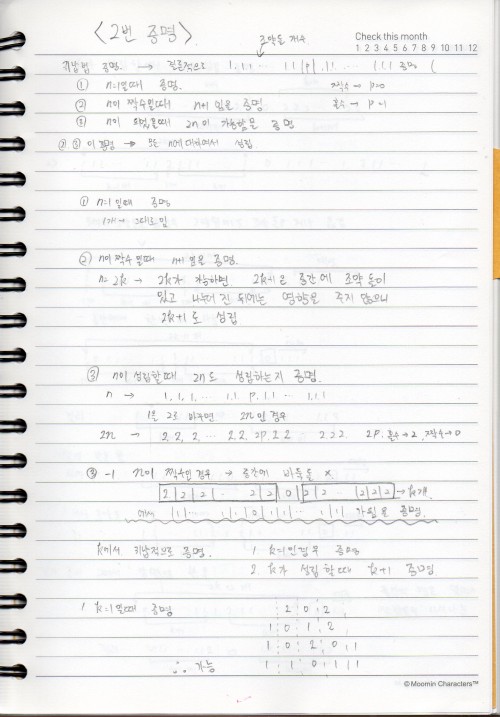 <2번 증명>
조약돌 개수
Check this month
1 2 3 4 5 6 7 8 9 10 11 12
귀납법 증명. → 결론적으로 1, 1, 1 ··· 1 1 |p| 1, 1 ··· 1 1, 1 증명 (
① n=1일때 증명. 짝수 → p=0
② n이 짝수일때 n+1 임을 증명 홀수 → p=1
③ n이 일때 2n이 가능함을 증명
② ③ 이 → 모든 n에 대하여서 성립
① n=1일때 증명
1개 → 그대로임
② n이 짝수일때 n+1 임을 증명.
n=2k → 2k가 가능하면. 2k+1은 중간에 조약돌이
있고 나누어진 뒤에는 영향을 주지 않으니
2k+1 도 성립
③ n이 성립할때 2n도 성립하는지 증명.
n → 1, 1, 1, ··· 1, 1 p, 1, 1 ··· 1, 1
1을 2로 바꾸면. 2n 인 경우
2n → 2, 2, 2, ··· 2 2. 2p. 2 2 2 2 2. 2p. 홀수→2, 짝수→0
③ -1 n이 짝수인 경우 → 중간에 바둑돌 x
2 2 2 ··· 2 2 0 2 2 ··· 2 2 2 → k개.
에서 1 1 ··· 1 1 0 1 1 ··· 1 1 가 됨을 증명.
k에서 귀납적으로 증명. 1 k=1인경우 증명
2. k가 성립할때 k+1 증명.
1 k=1일때 증명 2 0 2
1 0 1 2
1 0 2 0 1
∴ 가능 1 1 0 1 1
© Moomin Characters™